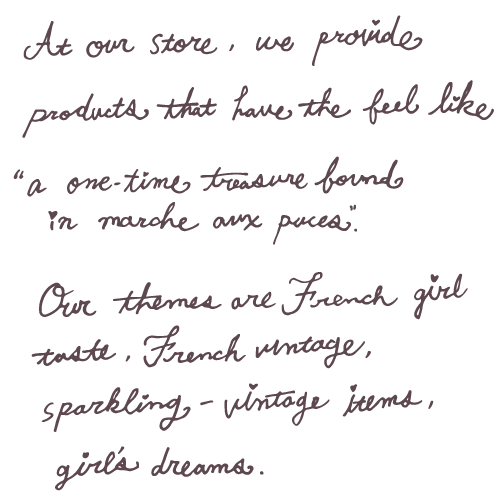 At our store, we provide
products that have the feel like
“a one-time treasure found
in marche aux puces”.
Our themes are French girl
taste, French vintage,
sparkling - vintage items,
girl's dreams.